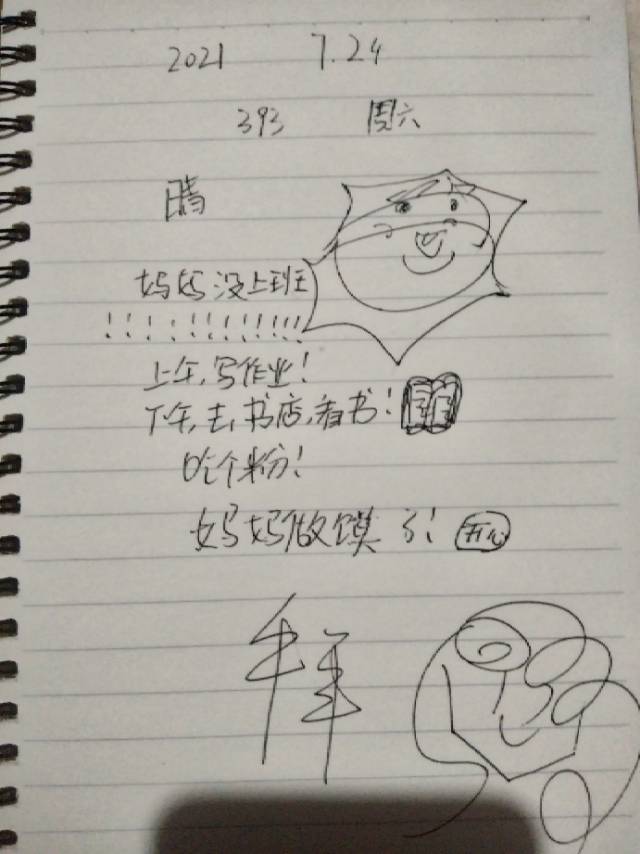 2021 7.24
393 周六
晴
妈妈没上班
!!!!!!!!!!!!!
上午,写作业!
下午,去,书店,看书!
吃个粉!
妈妈做馍了! 开心
拜